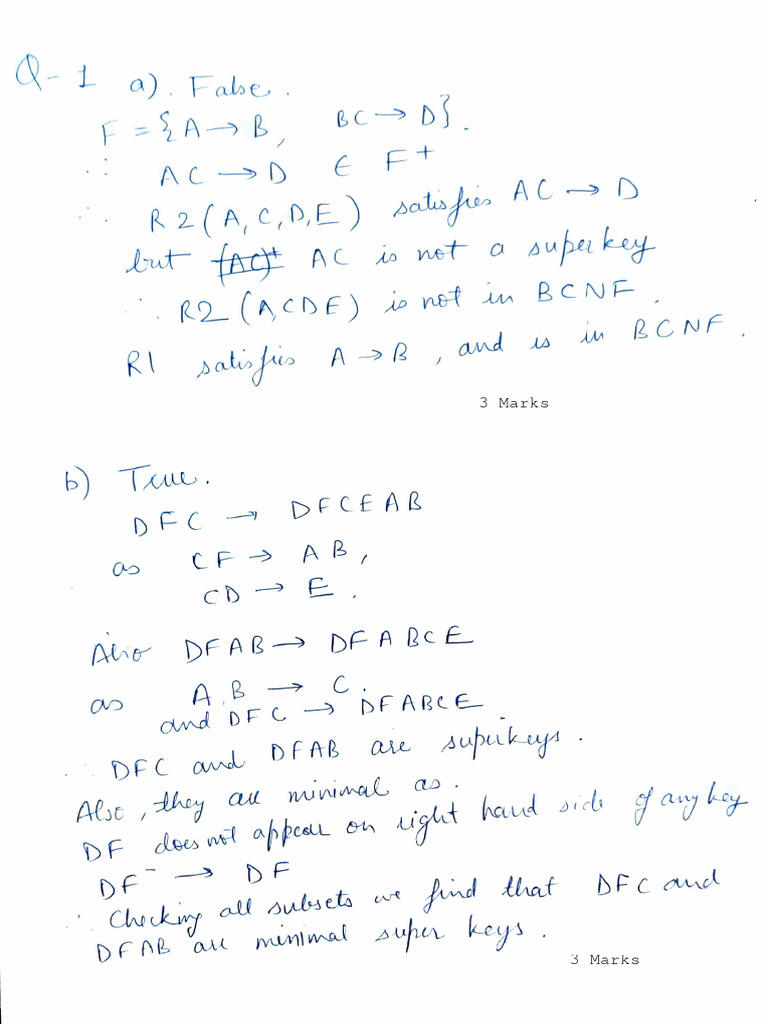 Q-1 a). False.
F = {A → B, BC → D}.
∴ AC → D ∈ F+
∴ R2(A,C,D,E) satisfies AC → D
but (AC)+ AC is not a superkey
∴ R2(A,CDE) is not in BCNF.
R1 satisfies A → B, and is in BCNF.
3 Marks
b) True.
DFC → DFCEAB
as CF → AB,
CD → E.
Also DFAB → DFABCE
as A,B → C.
and DFC → DFABCE
∴ DFC and DFAB are superkeys.
Also, they are minimal as.
DF does not appear on right hand side of any key
DF⁻ → DF
∴ Checking all subsets we find that DFC and
DFAB are minimal super keys.
3 Marks